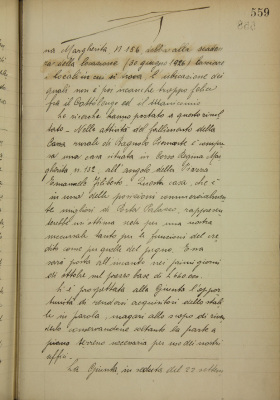 559
na Margherita N 126 sotto alla scaden-
za della locazione (30 giugno 1926) trovare
locali in cui si trova l'ubicazione dei
quali non è per neanche troppo felice
fra il Battilongo ed il
Le ricerche hanno portato a questo risul-
tato - Nelle attività del fallimento della
Cassa rurale di Cragnola Piemonte è compre-
sa una casa situata in Corso Regina Mar-
gherita n. 132 all'angolo della Piazza
Emanuele Filiberto. Questa casa, che è
in uno delle posizioni commercialmen-
te migliori di Porta Palazzo, rappresen-
terebbe un ottima sede per una nostra
succursale tanto per la funzione del cre-
dito come per quella del pegno. Essa
sarà posta all'incanto nei primi giorni
di ottobre sul prezzo base di L 650.000.
Si è prospettata alla Giunta l'oppor-
tunità di renderci acquisitori dello stabi-
le in parola, magari allo scopo di riven-
derlo conservandone soltanto la parte a
piano terreno necessaria per uso dei nostri
uffici.
La Giunta in seduta del 22 settem